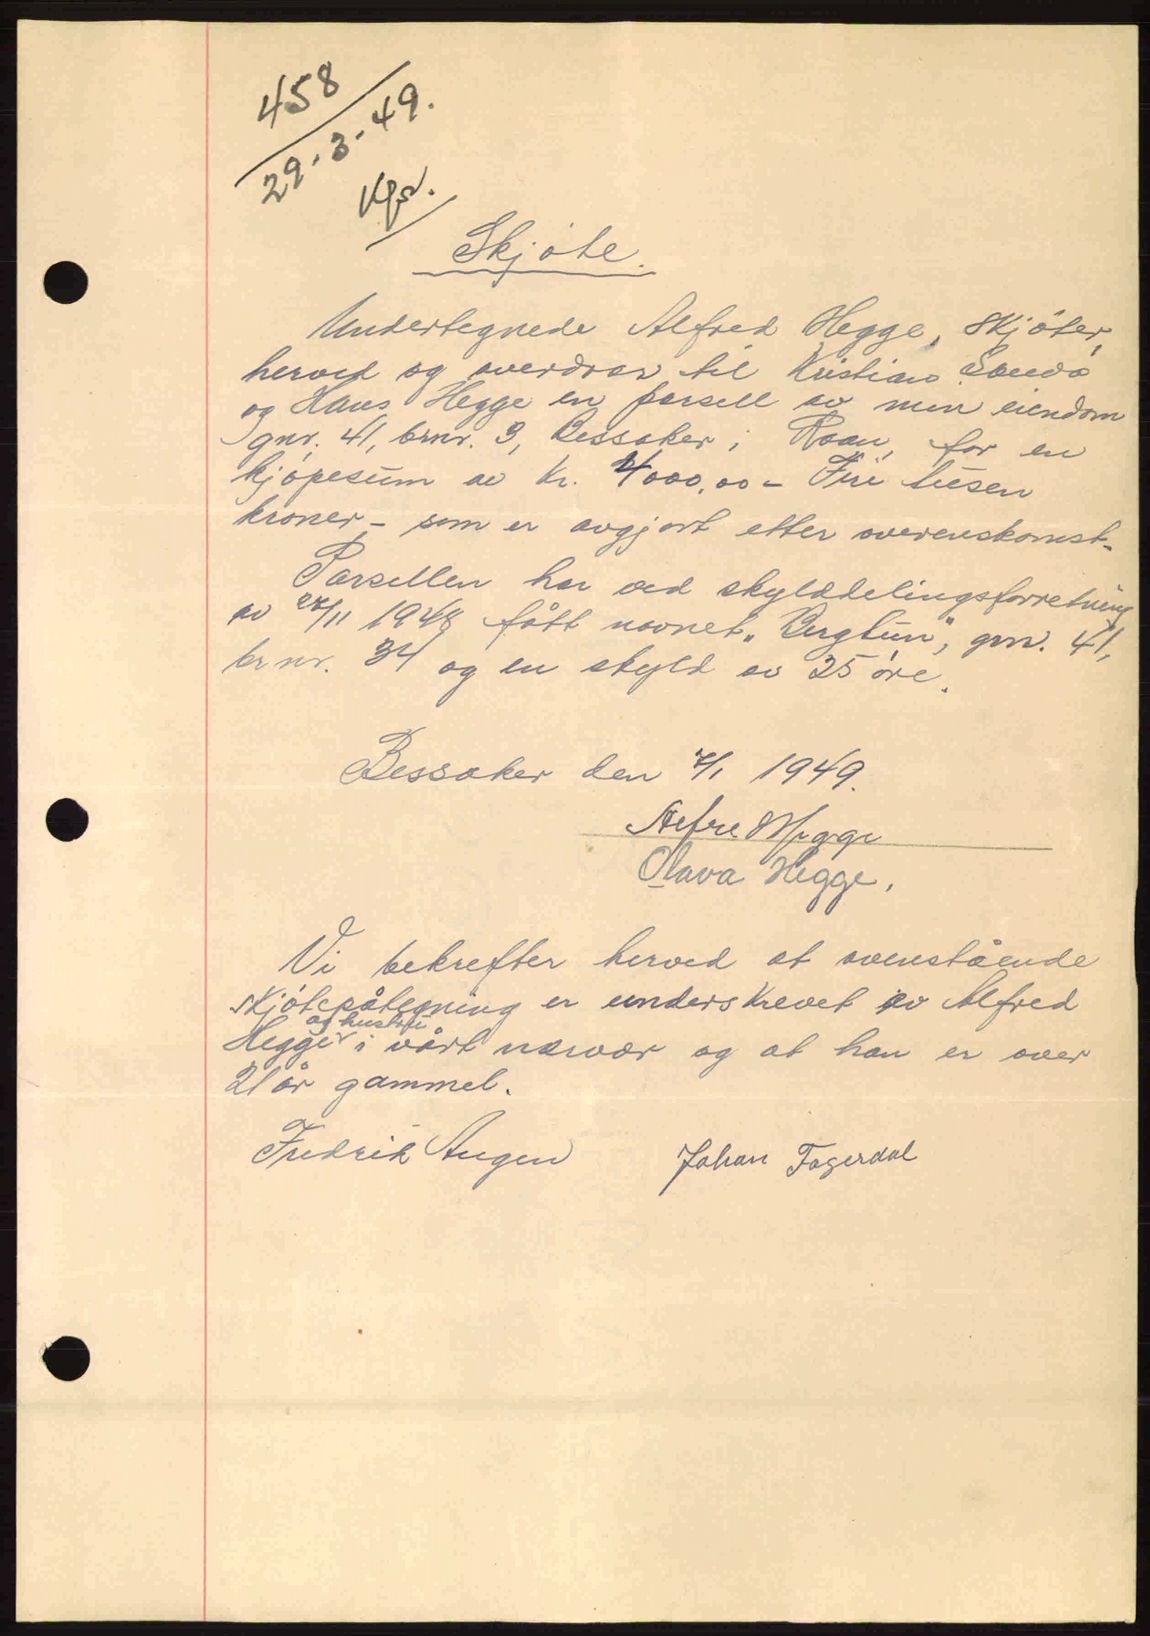 458
29-3-49.
Skjøte.
Undertegnede Alfred Hegge, skjøter,
herved og overdrar til Kristian
og Hans Hegge en parsell av min eiendom
gnr. 41, brnr. 3, Bessaker i Roan, for en
kjøpesum av kr. 4000,00 - Fire tusen
kroner - som er avgjort etter overenskomst.
Parsellen har ved skylddelingsforretning
av 27/11 1948 fått navnet "Bergtun", gnr. 41,
brnr. 34 og en skyld av 25 øre.
Bessaker den 7/1 1949.
Alfred Hegge
Olava Hegge.
Vi bekrefter herved at ovenstående
skjøtepåtegning er underskrevet av Alfred
og hustru
Hegge i vårt nærvær og at han er over
21 år gammel.
Fredrik Augen Johan Fagerdal